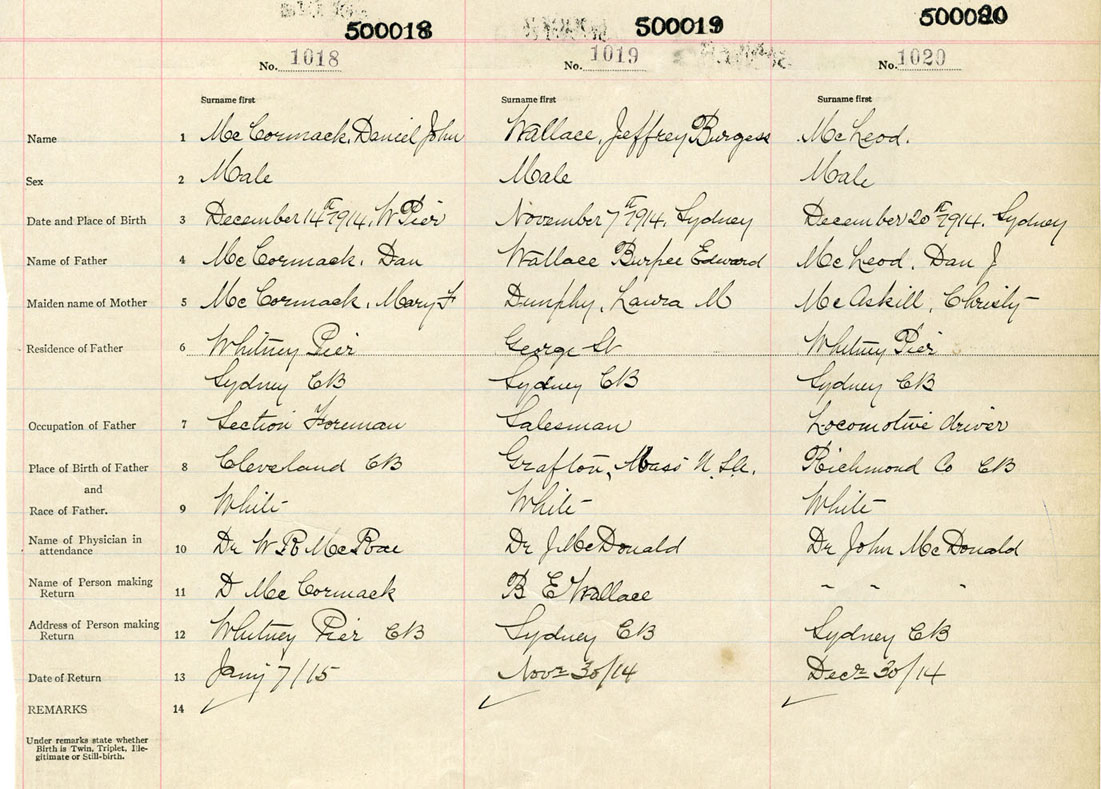 500018 500019 500020
No. 1018 No. 1019 No. 1020
Surname first Surname first Surname first
Name 1 Mc Cormack, Daniel John Wallace, Jeffrey Burgess McLeod.
Sex 2 Male Male Male
Date and Place of Birth 3 December 14th 1914, W Pier November 7th 1914, Sydney December 20th 1914, Sydney
Name of Father 4 McCormack, Dan Wallace Burpee Edward McLeod, Dan J
Maiden name of Mother 5 Mc Cormack, Mary F Dunphy, Laura M McAskill, Christy
Residence of Father 6 Whitney Pier George St Whitney Pier
Sydney CB Sydney CB Sydney CB
Occupation of Father 7 Section Foreman Salesman Locomotive driver
Place of Birth of Father 8 Cleveland CB Grafton, Mass Richmond Co CB
and
Race of Father. 9 White White White
Name of Physician in
attendance 10 Dr W R McRae Dr J McDonald Dr John McDonald
Name of Person making
Return 11 D McCormack B E Wallace " " "
Address of Person making
Return 12 Whitney Pier CB Sydney CB Sydney CB
Date of Return 13 Jany 7/15 Novr 30/14 Decr 30/14
REMARKS 14
Under remarks state whether
Birth is Twin, Triplet, Ille-
gitimate or Still-birth.